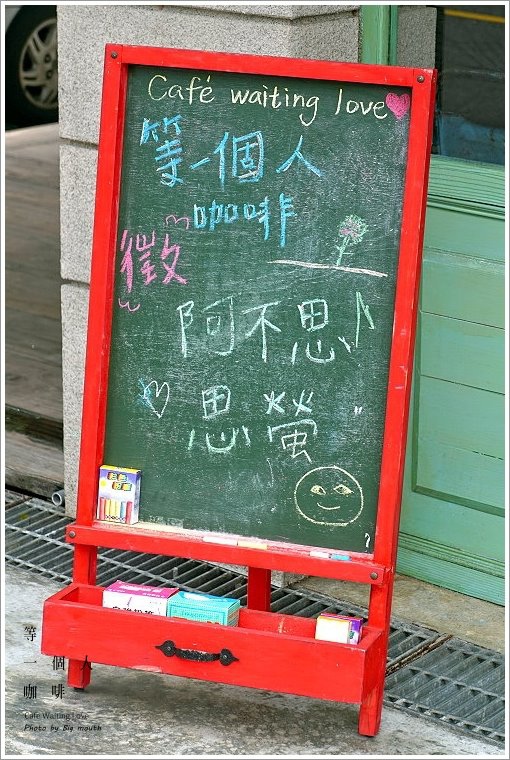 Café waiting love
等一個人
咖啡
徵
阿不思
思螢
?
等
一個人
咖啡
Café Waiting Love
Photo by Big mouth